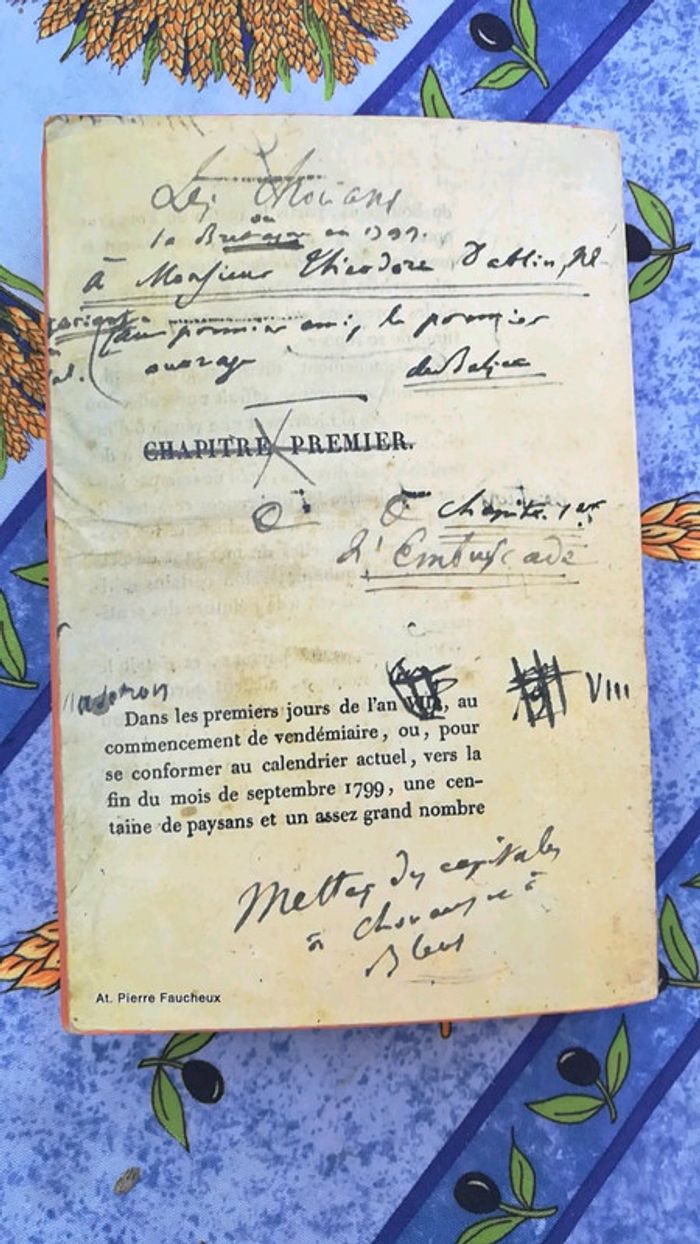 Les Chouans
ou
la Bretagne en 1799.
à Monsieur Théodore Dablin, Né-
(au premier ami, le premier
ouvrage
de Balzac
CHAPITRE PREMIER.
Chapitre. 1er
L'Embuscade
Dans les premiers jours de l'an VIII, au VIII
commencement de vendémiaire, ou, pour
se conformer au calendrier actuel, vers la
fin du mois de septembre 1799, une cen-
taine de paysans et un assez grand nombre
Mettez des capitales
à chouans et à
Bleus
At. Pierre Faucheux